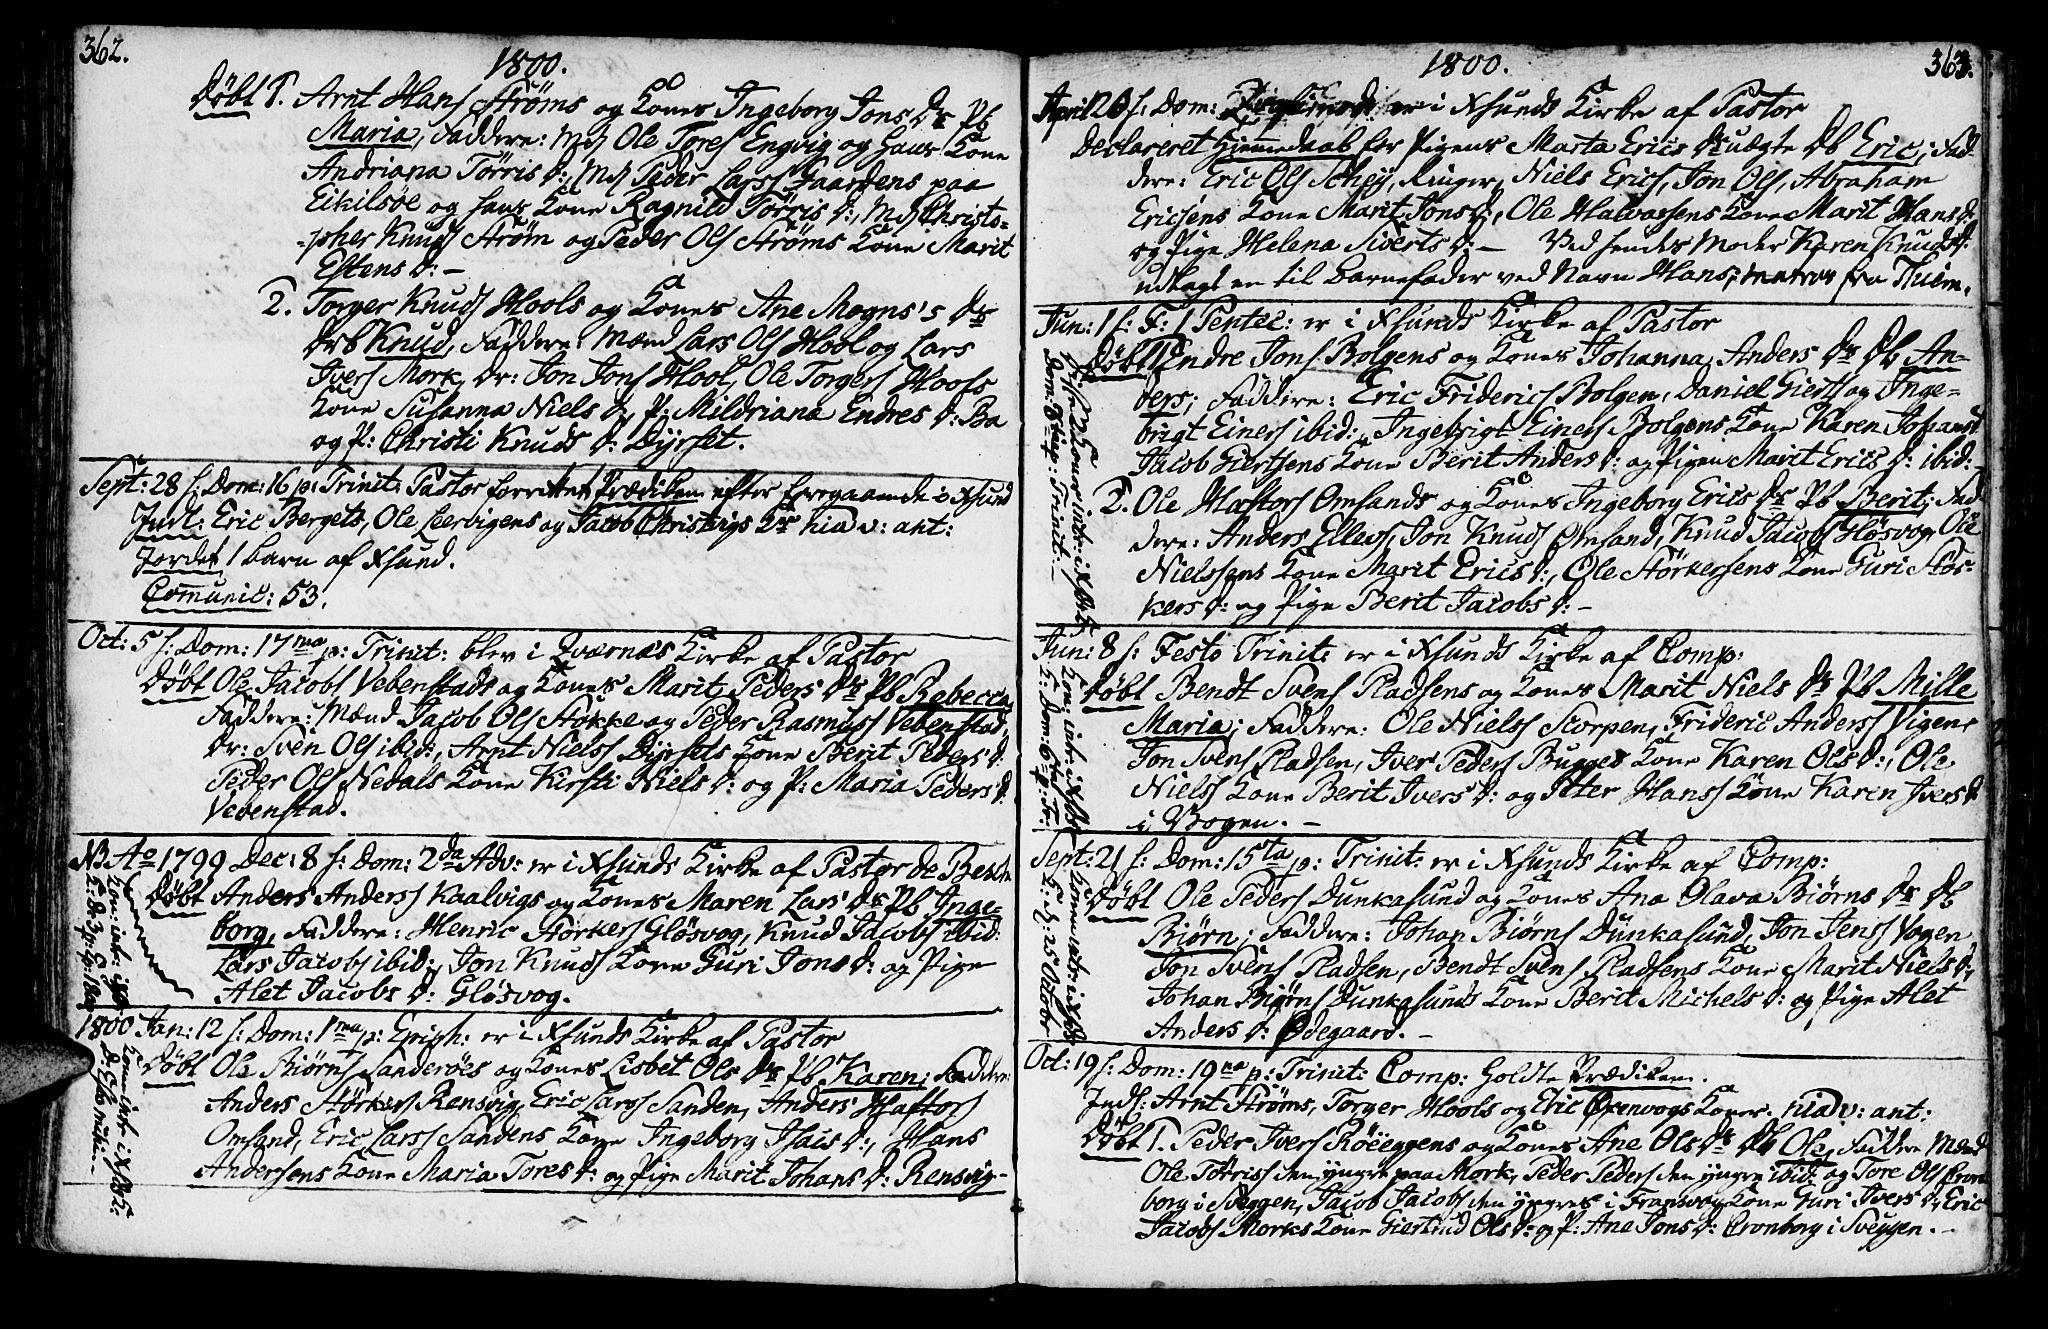 362.
1800.
Døbt 1. Arnt Hans Strøms og Kones Ingeborg Jons Dr Pb
Maria, Faddere: Md Ole Tores Engvig og Hans Kone
Andriana Tørris D:, Md Peder Larss Gaardens paa
Eikilsøe og hans Kone Ragnild Tørris D:, Md Christo-
-pher Knuds Strøm og Peder Ols Strøms Kone Marit
Estens D: –
2. Torger Knuds Hools og Kones Ane Mogns's Dr
Drb Knud, Faddere: Mænd Lars Ols Hool og Lars
Ivers Mork, Dr: Jon Jons Hool, Ole Torgers Hools
Kone Susanna Niels D:, P: Mildriana Endres D: Ba
og P: Christi Knuds D: Dyrset.
Sept: 28 s: Dom: 16 p: Trinit: Pastor forrettet Prædiken efter foregaaende i Xsund
Indl: Eric Bergets, Ole Leervigens og Jacob Christvigs 2r hiav: ant:
Jordet 1 barn af Xsund.
Comunic: 53.
Oct: 5 s: Dom: 17ma p: Trinit: blev i Qværnæs Kirke af Pastor
Døbt Ole Jacobs Vebenstads og Kones Marit Peders Dr Pb Rebecca,
Faddere: Mænd Jacob Ols Stokke og Peder Rasmuss Vebenstad,
Dr: Sven Ols ibid:, Arnt Nielss Dyrsets Kone Berit Peders D:
Peder Ols Nedals Kone Kirsti Niels D: og P: Maria Peders D:
Vebenstad.
NB Ao 1799 Dec: 8 s: Dom: 2da Adv: er i Xsunds Kirke af Pastor de Besche
Døbt Anders Anderss Kaalvigs og Kones Maren Lars' Dr Pb Inge-
borg, Faddere: Henric Størkers Gløsvog, Knud Jacobs ibid:
Lars Jacobs ibid:, Jon Knuds Kone Guri Jons D: og Pige
Alet Jacobs D: Gløsvog.
1800 Jan: 12 s: Dom: 1ma p: Epiph: er i Xsunds Kirke af Pastor
Døbt Ole Biørns Sanderøes og Kones Lisbet Ols Dr Pb Karen; Faddere:
Anders Størkers Rensvig, Eric Larss Sanden, Anders Hastors
Omsand, Eric Larss Sandens Kone Ingeborg Isacs D:, Hans
Andersens Kone Maria Tores D: og Pige Marit Johans D: Rensvig –
363.
1800.
April 20 s: Dom: er i Xsunds Kirke af Pastor
Declareret Hiemedaab for Pigens Marta Erics Dr uægte Db Eric; Fad-
dere: Eric Ols Schey, Ringer, Niels Erics, Jon Ols, Abraham
Ericsens Kone Marit Jons D:, Ole Halvarsens Kone Marit Hans D:
og Pige Helena Siverts D: – Ved hendes Moder Karen Knuds D:
udlagt er til Barnefader ved Navn Hans, matros fra Thiem.
Jun: 1 s: F: 1 Pentec: er i Xsunds Kirke af Pastor
Døbt 1 Endre Jons Bolgens og Kones Johanna Anders Dr Db An-
ders; Faddere: Eric Friderics Bolgen, Daniel Giertss og Inge-
brigt Einers ibid:, Ingebrigt Einers Bolgens Kone Karen Johans D
Jacob Giertsens Kone Berit Anders D: og Pigen Marit Erics D: ibid:
2. Ole Hastors Omsands og Kones Ingeborg Erics Dr Pb Berit, Fad-
dere: Anders Ellevs, Jon Knuds Omsand, Knud Jacobs Gløsvog, Ole
Nielssens Kone Marit Erics D:, Ole Størkersens Kone Guri Stør-
kers D: og Pige Berit Jacobs D: –
Jun: 8 s: Festo Trinit: er i Xsunds Kirke af Comp:
Døbt Bendt Svens Pladsens og Kones Marit Niels Dr Pb Mille
Maria; Faddere: Ole Nielss Storpen, Frideric Anderss Vigen,
Jon Svens Pladsen, Iver Peders Bugges Kone Karen Ols D:, Ole
Nielss Kone Berit Ivers D: og Peter Hanss Kone Karen Ivers D
i Vogen. –
Sept: 21 s: Dom: 15ta p: Trinit: er i Xsunds Kirke af Comp:
Døbt Ole Peders Dunkasund og Kones Ana Olava Biørns Dr Db
Biørn; Faddere: Johan Biørns Dunkasund, Jon Jens Vogen
Jon Svens Pladsen, Bendt Svens Pladsens Kone Marit Niels D:,
Johan Biørns Dunkasunds Kone Berit Michels D: og Pige Alet
Anders D: Ødegaard. –
Oct: 19 s: Dom: 19na p: Trinit: Comp: Holdte Prædiken.
Inds: Arnt Strøms, Torger Hools og Eric Ørenvogs Kones. hiav: ant:
Døbt 1. Peder Ivers Røeeggens og Kones Ane Ols Dr Db Ole, Faddere Mænd
Ole Tørriss den yngre paa Mork, Peder Peders den yngre ibid: og Tore Ols Cron-
borg i Sveggen, Jacob Jacobs den yngres i Fransvog Kone Guri Ivers D:, Eric
Jacobs Morks Kone Giertrud Ols D: og P: Ane Jons D: Cronborg i Sveggen. –